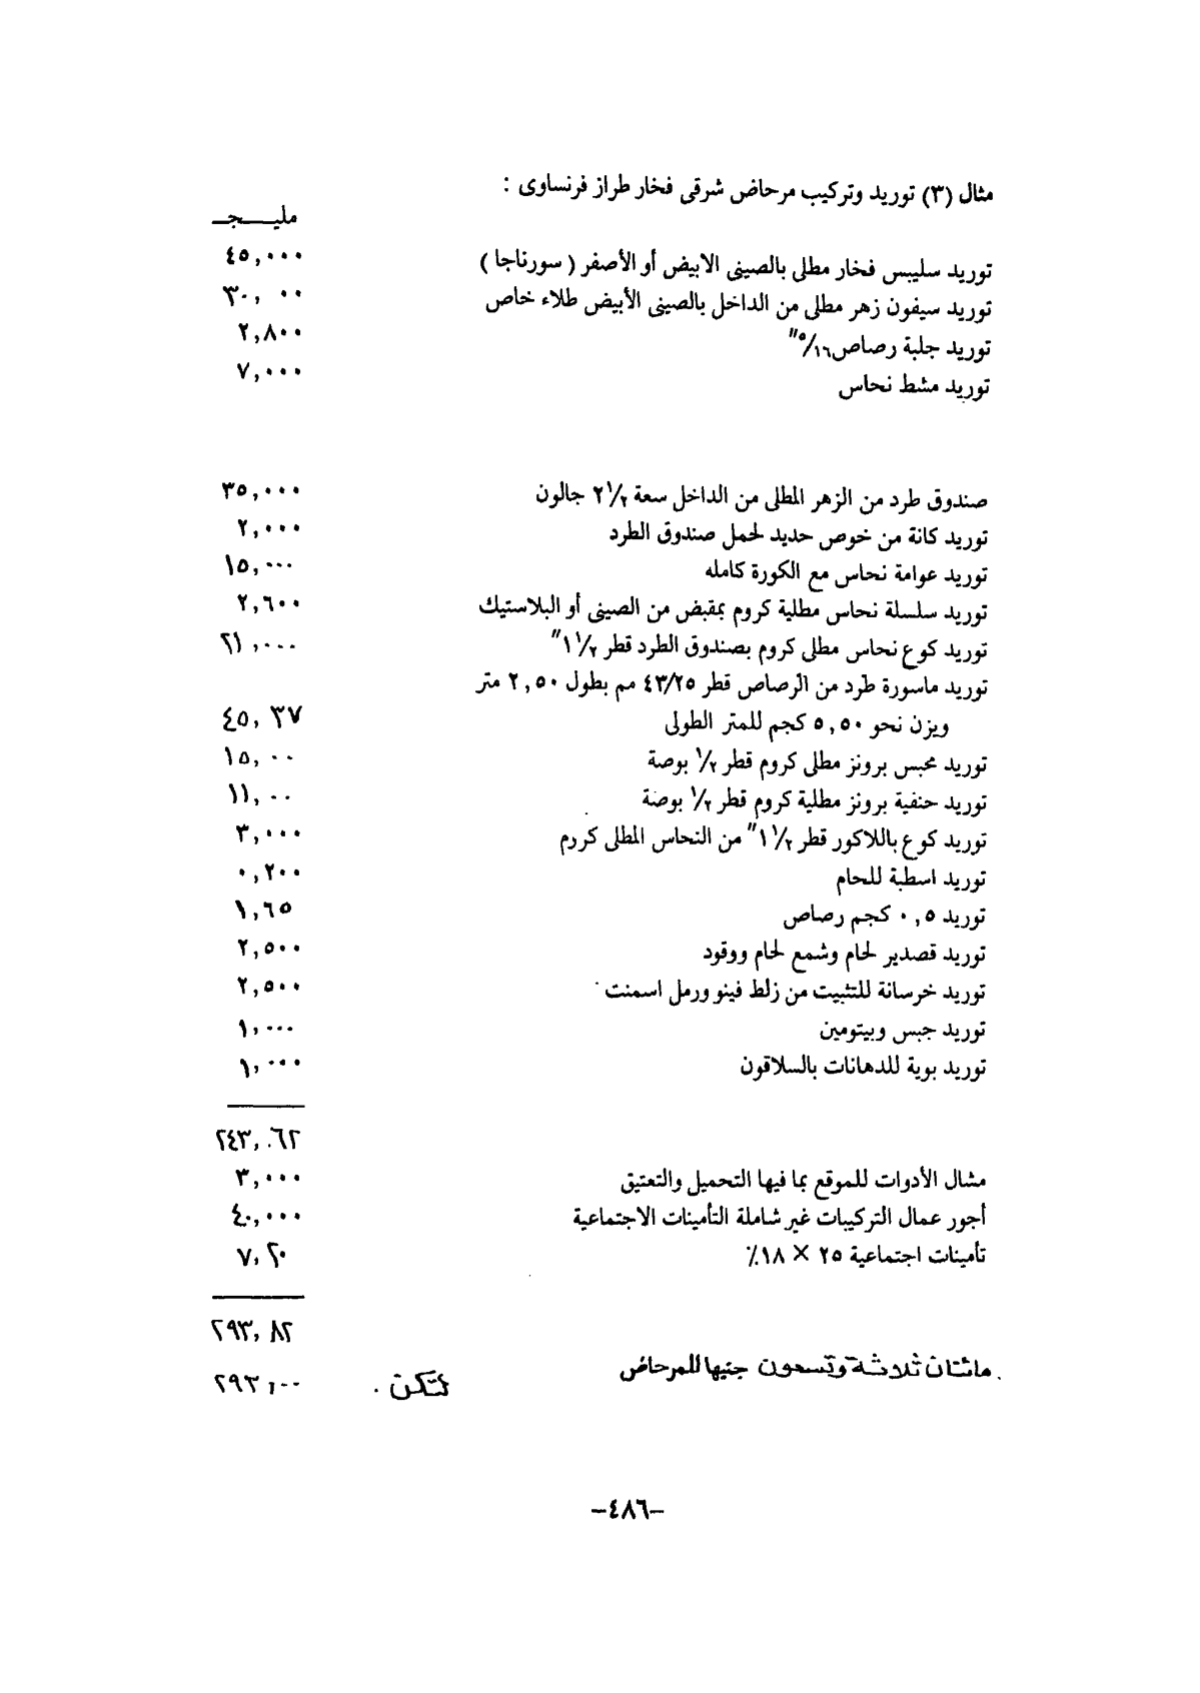 مثال (٣) توريد وتركيب مرحاض شرقى فخار طراز فرنساوى :
مليـــجـ
توريد سليبس فخار مطلى بالصينى الابيض أو الأصفر ( سورناجا ) ٤٥,٠٠٠
توريد سيفون زهر مطلى من الداخل بالصينى الأبيض طلاء خاص ٣٠,٠٠
توريد جلبة رصاص ٥/١٦" ٢,٨٠٠
توريد مشط نحاس ٧,٠٠٠
صندوق طرد من الزهر المطلى من الداخل سعة ٢١/٢ جالون ٣٥,٠٠٠
توريد كانة من خوص حديد لحمل صندوق الطرد ٢,٠٠٠
توريد عوامة نحاس مع الكورة كامله ١٥,٠٠٠
توريد سلسلة نحاس مطلية كروم بمقبض من الصينى أو البلاستيك ٢,٦٠٠
توريد كوع نحاس مطلى كروم بصندوق الطرد قطر ١١/٢" ٢١,٠٠٠
توريد ماسورة طرد من الرصاص قطر ٤٣/٢٥ مم بطول ٢,٥٠ متر
ويزن نحو ٥,٥٠ كجم للمتر الطولى ٤٥,٣٧
توريد محبس برونز مطلى كروم قطر ١/٢ بوصة ١٥,٠٠
توريد حنفية برونز مطلية كروم قطر ١/٢ بوصة ١١,٠٠
توريد كوع باللاكور قطر ١١/٢" من النحاس المطلى كررم ٣,٠٠٠
توريد اسطبة للحام ٠,٢٠٠
توريد ٠,٥ كجم رصاص ١,٦٥
توريد قصدير لحام وشمع لحام ووقود ٢,٥٠٠
توريد خرسانة للتثبيت من زلط فينو ورمل اسمنت ٢,٥٠٠
توريد جبس وبيتومين ١,٠٠٠
توريد بوية للدهانات بالسلاقون ١,٠٠٠
٢٤٣,٠٦٢
مشال الأدوات للموقع بما فيها التحميل والتعتيق ٣,٠٠٠
أجور عمال التركيبات غير شاملة التأمينات الاجتماعية ٤٠,٠٠٠
تأمينات اجتماعية ٢٥ × ١٨٪ ٧,٢٠
٢٩٣,٨٢
مائتان ثلاثة وتسعون جنيها للمرحاض لتكن . ٢٩٣,٠٠
–٤٨٦–